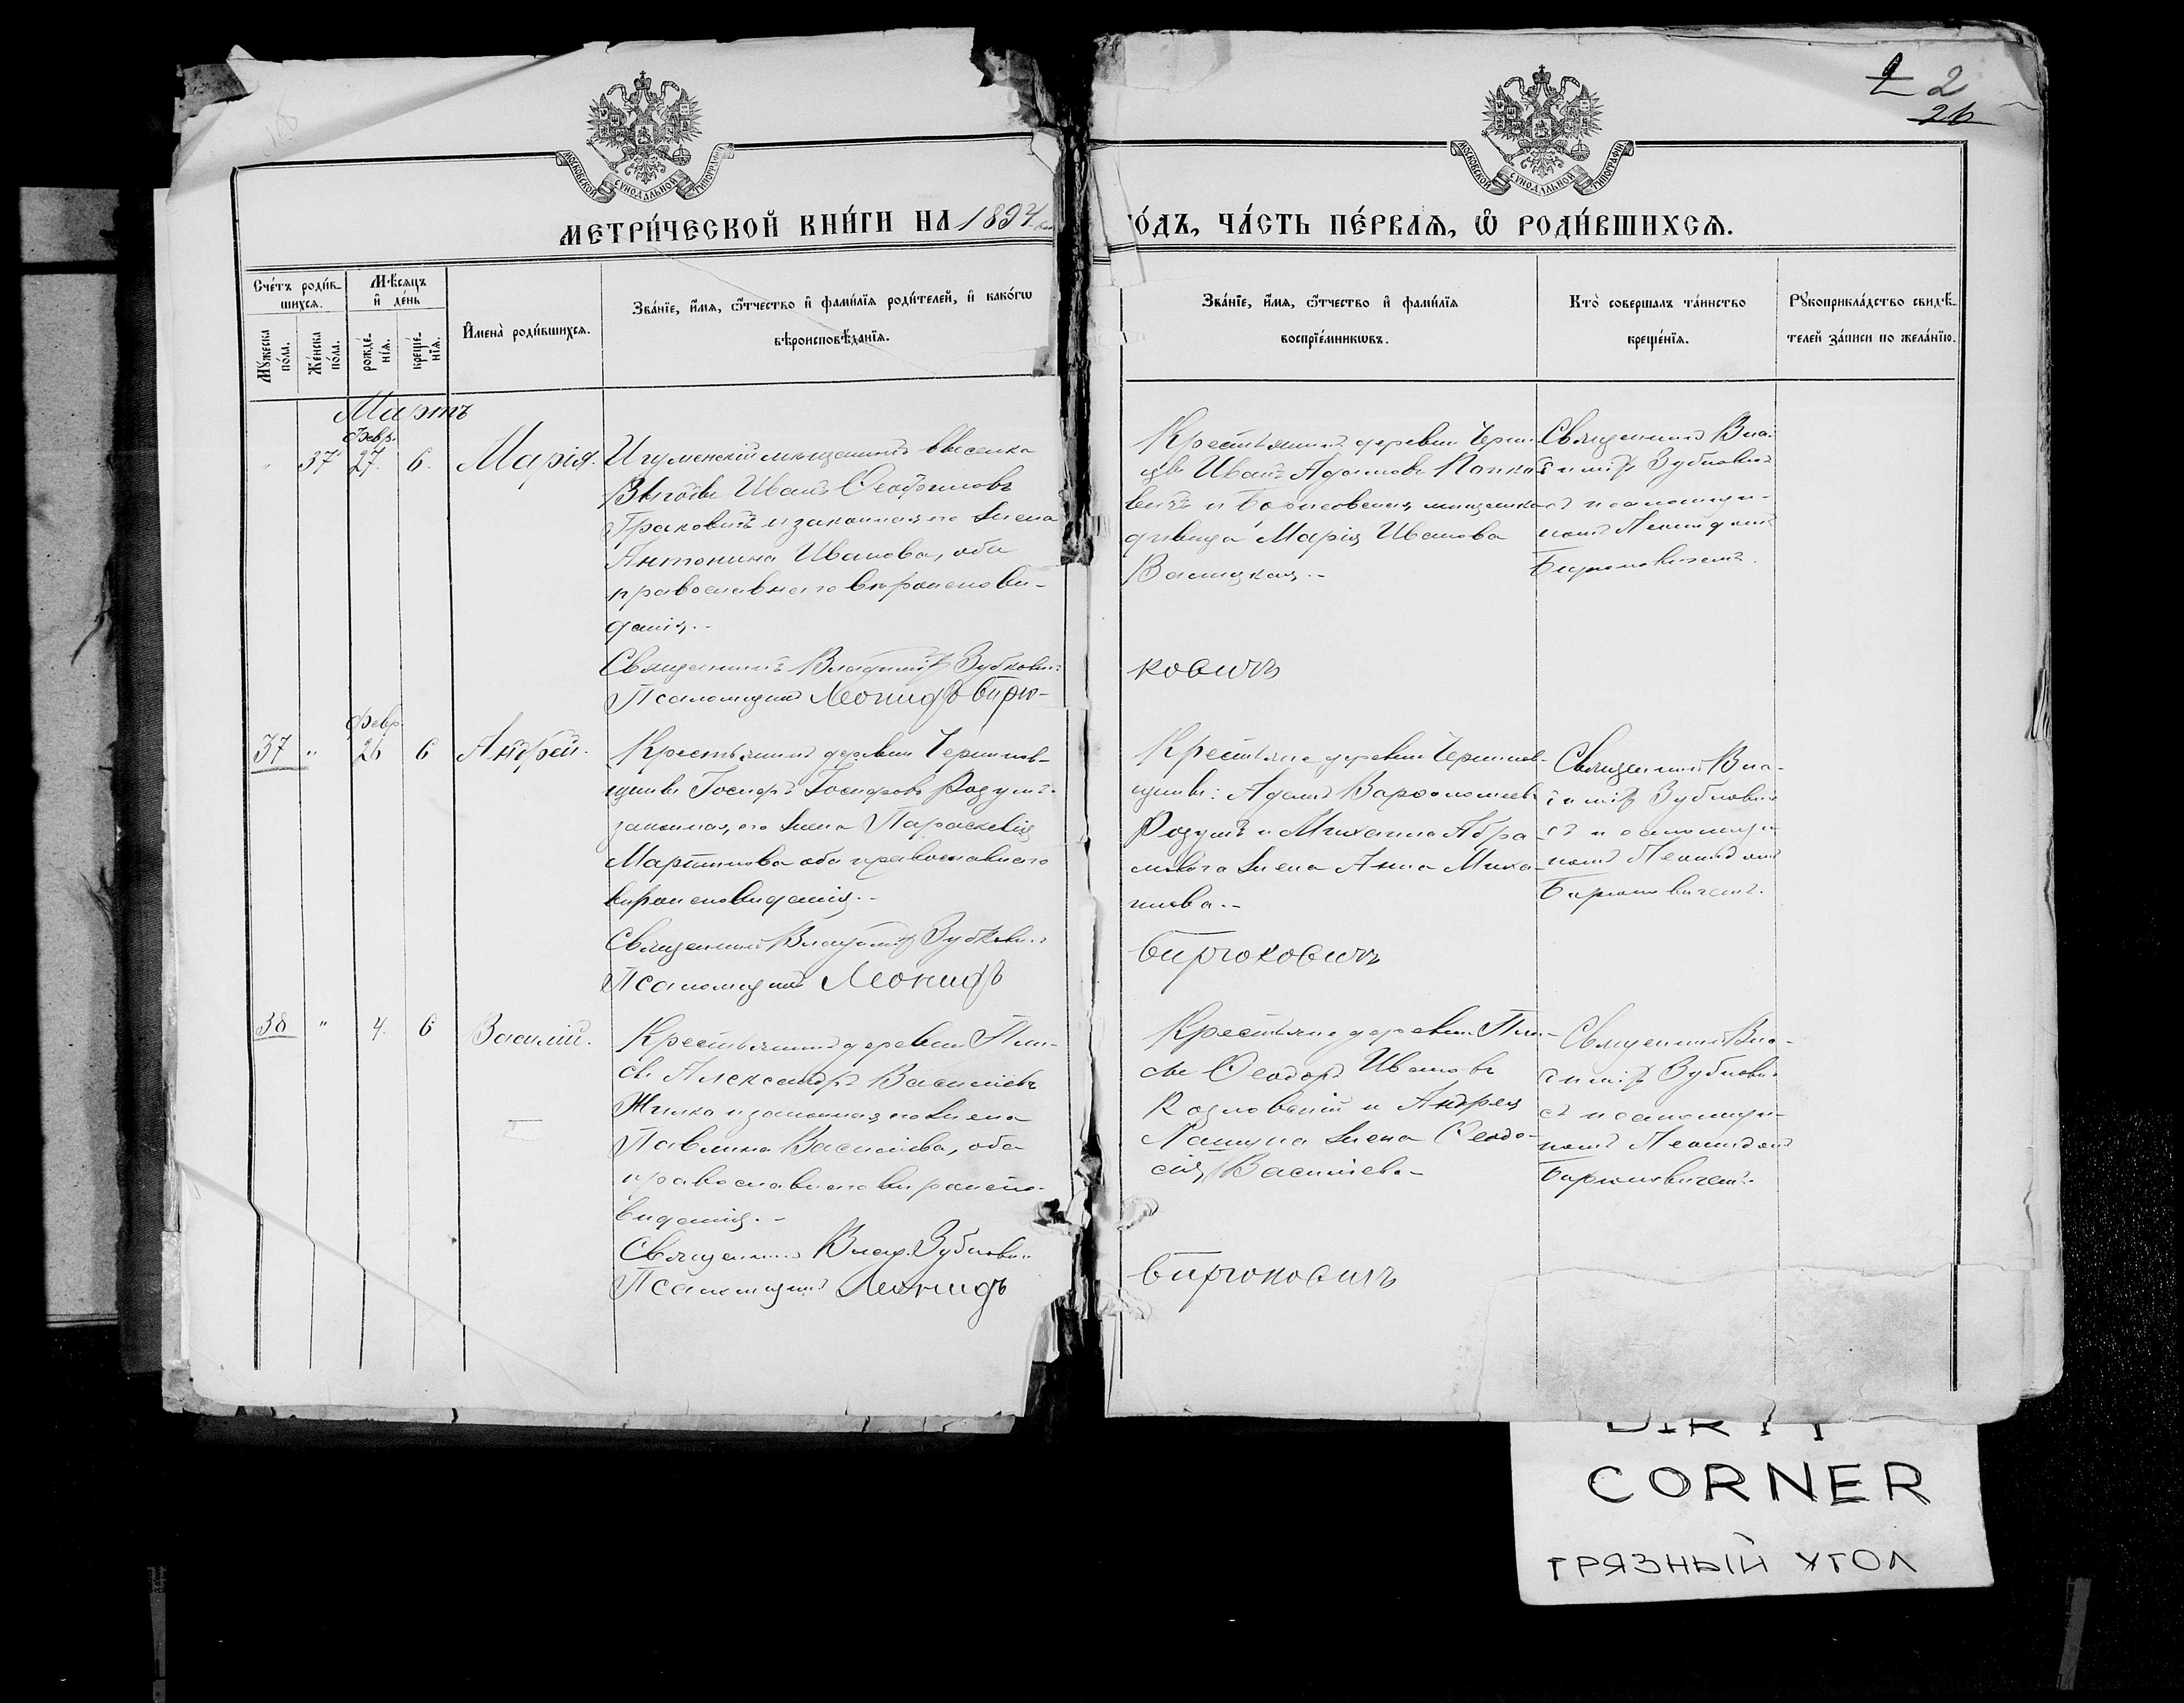 2 2
26
МОСКОВСКОЙ СѴНОДАЛЬНОЙ ТИПОГРАФІИ
МОСКОВСКОЙ СѴНОДАЛЬНОЙ ТИПОГРАФІИ
МЕТРИ́ЧЕСКОЙ КНИ́ГИ НА 1894
О́ДЪ, ЧА́СТЬ ПЕ́РВАѦ, Ѽ РОДИ́ВШИХСѦ.
Сче́тъ роди́в-
шихсѧ.
Мꙋ́жеска по́ла.
Же́нска по́ла.
Мѣ́сѧцъ
и҆ де́нь
рожде́-нїѧ.
креще́-нїѧ.
И҆мена̀ роди́вшихсѧ.
Зва́нїе, и҆́мѧ, ѻ҆́тчество и҆ фами́лїѧ роди́телей, и҆ како́гѡ
вѣроисповѣ́данїѧ.
Зва́нїе, и҆́мѧ, ѻ҆́тчество и҆ фами́лїѧ
воспрїе́мникѡвъ.
Кто̀ соверша́лъ та́инство
креще́нїѧ.
Рꙋкоприкла́дство свидѣ́-
телей за́писи по жела́нїю.
Мартъ
Февр.
" 37 27. 6. Марія.
Игуменскій мѣщанинъ выселка
Выгоды Иванъ Ѳеодоровъ
и законная его жена
Антонина Иванова, оба
православнаго вѣроисповѣ-
данія.-
Священникъ Владиміръ Зубкови
Псаломщикъ Леонидъ Бирю-
Крестьянинъ деревни
Иванъ Адамовъ
и Борисовская мѣщанка
дѣвица Марія Иванова
ковичъ
Священникъ Вла-
диміръ Зубковичъ
съ псаломщи-
комъ Леонидомъ
Бирюковичемъ.
Февр.
37 " 26 6 Андрей.
Крестьянинъ деревни Чернев-
Госифъ Госифовъ Розумъ.
законная его жена Параскевія
Мартинова оба православнаго
вѣроисповѣданія.-
Священникъ Владиміръ Зубкович
Псаломщикъ Леонидъ
Крестьяне деревни
Адамъ Варѳоломеевъ
Розумъ и Михаила Абра-
мова жена Анна Миха-
лова.-
Бирюковичъ
Священникъ Вла-
диміръ Зубковичъ
съ псаломщи-
комъ Леонидомъ
Бирюковичемъ.
38 " 4. 6 Василій.
Крестьянинъ деревни Пли-
сы Александръ Васильевъ
Жилко и законная его жена
Павлина Васильева, оба
православнаго вѣроиспо-
вѣданія.-
Священникъ Влад. Зубкович
Псаломщикъ Леонидъ
Крестьяне деревни Пли-
сы Ѳеодоръ Ивановъ
Козловскій и Андрея
жена Ѳеодо-
сія Васильева-
Бирюковичъ
Священникъ Вла-
диміръ Зубкович
съ псаломщи-
комъ Леонидомъ
Бирюковичемъ.
DIRTY
CORNER
ГРЯЗНЫЙ УГОЛ